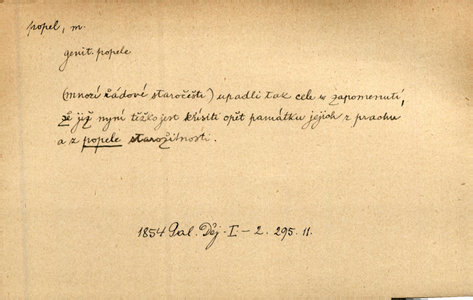 popel, m.
genit. popele
(mnozí řádové staročeští) upadli tak cele w zapomenutí,
že již nyní těžko jest křísiti opět památku jejich z prachu
a z popele starožitnosti.
1854 Pal. Děj. I – 2. 295. 11.